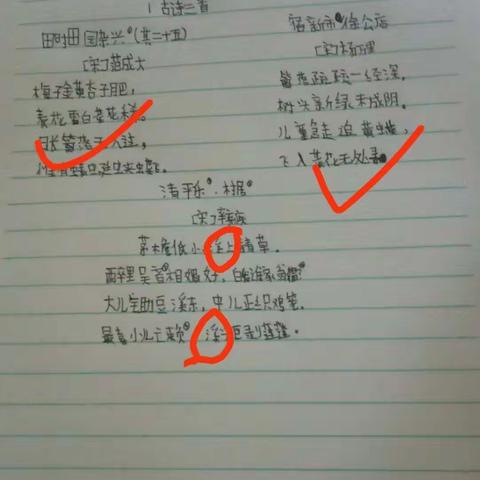 1 古诗三首
四时田园杂兴(其二十五)
[宋]范成大
梅子金黄杏子肥,
麦花雪白菜花稀。
日长篱落无人过,
惟有蜻蜓蛱蝶飞。
宿新市徐公店
[宋]杨万里
篱落疏疏一径深,
树头新绿未成阴。
儿童急走追黄蝶,
飞入菜花无处寻。
清平乐·村居
[宋]辛弃疾
茅檐低小,溪上青草。
醉里吴音相媚好,白发谁家翁媪
大儿锄豆溪东,中儿正织鸡笼。
最喜小儿亡赖,溪头卧剥莲蓬。